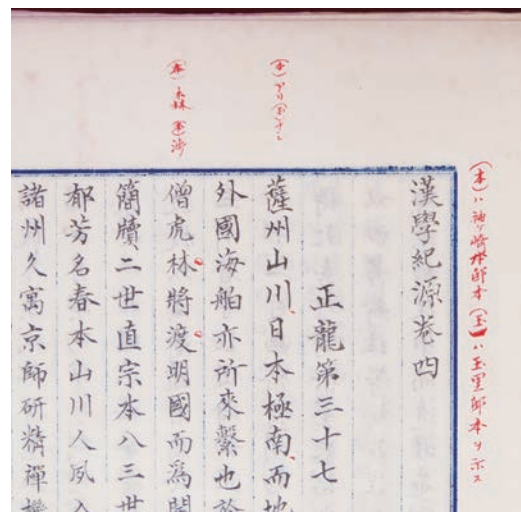 (本)ハ袖ヶ崎邸本(玉)ハ玉里邸本ヲ示ス
漢學紀源卷四
正龍第三十七
薩州山川日本極南而地
外國海舶亦所來繫也於
僧虎林將渡明國而爲
簡牘二世直宗本八三世
郁芳名春本山川人夙入
諸州久寓京師研精禪機